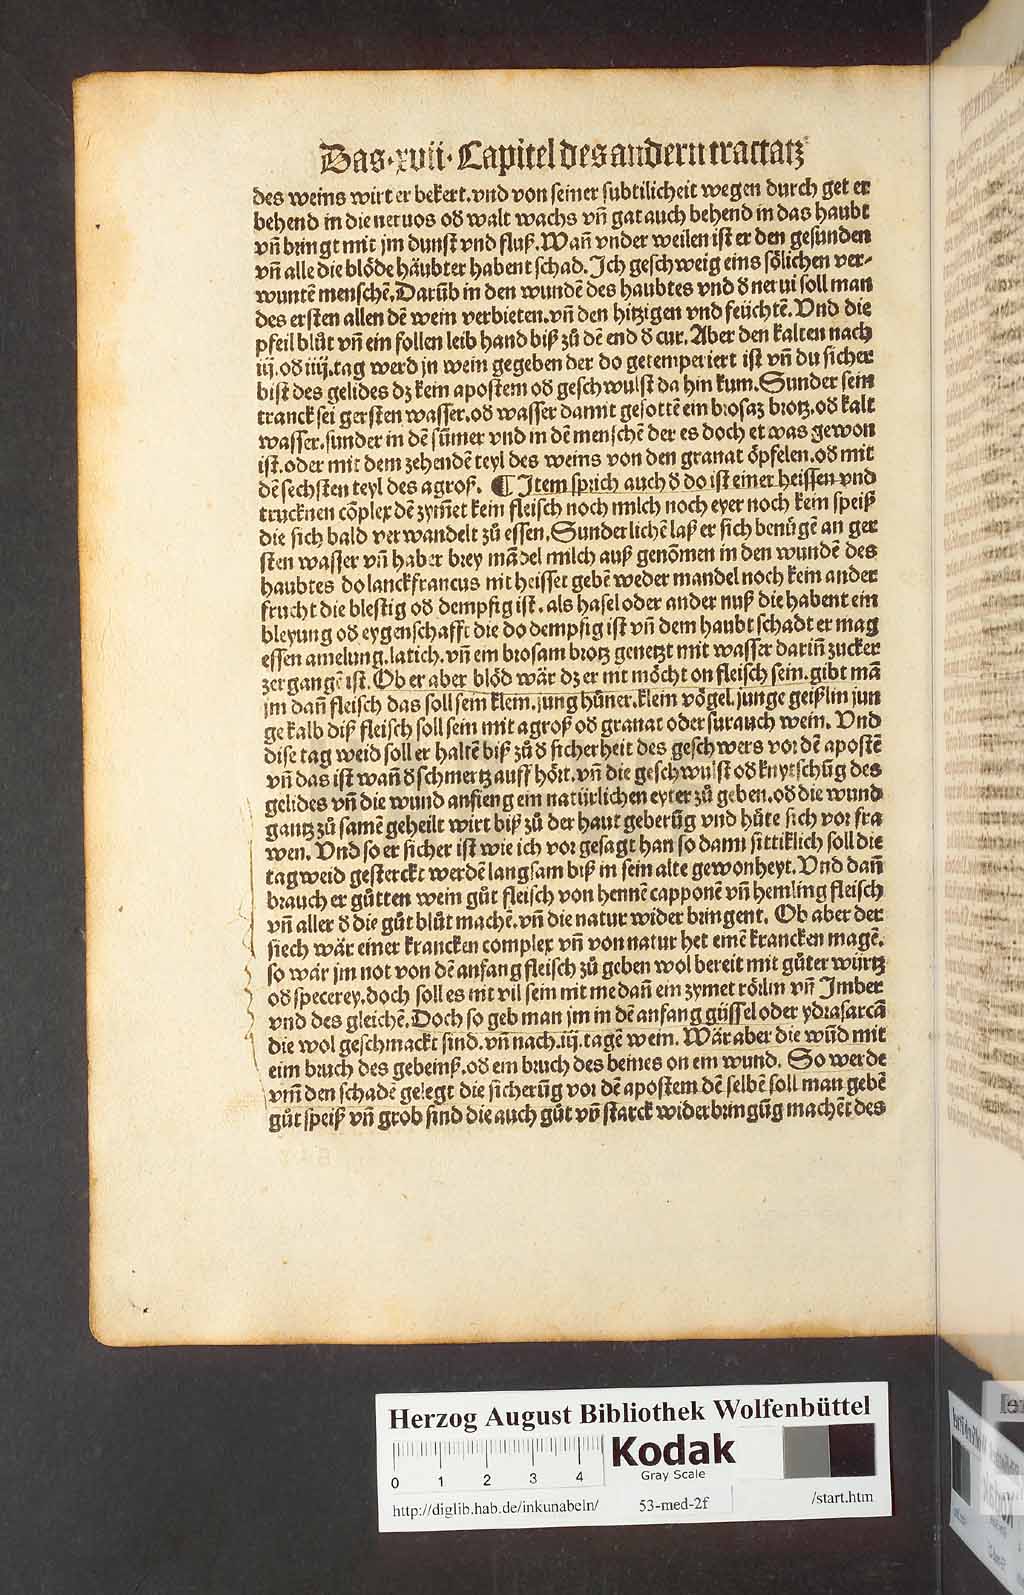 Das·xvii·Capitel des andern tractatz
des weins wirt er bekert.vnd von seiner subtilicheit wegen durch get er
behend in die neruos oð walt wachs vn̄ gat auch behend in das haubt
vn̄ bringt mit jm dunst vnd fluß.Wan̄ vnder weilen ist er den gesunden
vn̄ alle die blöde häubter habent schad.Ich geschweig eins sölichen ver⸗
wuntē menschē.Darūb in den wundē des haubtes vnd ð nerui soll man
des ersten allen dē wein verbieten.vn̄ den hitzigen vnd feüchtē.Vnd die
pfeil blůt vn̄ ein follen leib hand biß zů dē end ð cur.Aber den kalten nach
iij.oð iiij.tag werd jn wein gegeben der do getemperiert ist vn̄ du sicher
bist des gelides dz kein apostem oð geschwulst da hin kum.Sunder sein
tranck sei gersten wasser.oð wasser damit gesottē ein brosaz brotz.oð kalt
wasser.sunder in dē sūmer vnd in dē menschē der es doch etwas gewon
ist.oder mit dem zehendē teyl des weins von den granat öpfelen.oð mit
dē sechsten teyl des agroß. ¶ Item sprich auch ð do ist einer heissen vnd
trucknen cōplex dē zym̄et kein fleisch noch milch noch eyer noch kein speiß
die sich bald verwandelt zů essen.Sunderlichē laß er sich benügē an ger
sten wasser vn̄ haber brey mādel milch auß genōmen in den wundē des
haubtes do lanckfrancus nit heisset gebē weder mandel noch kein ander
frucht die blestig oð dempfig ist.als hasel oder ander nuß die habent ein
bleyung oð eygenschafft die do dempfig ist vn̄ dem haubt schadt er mag
essen amelung.latich.vn̄ ein brosam brotz genetzt mit wasser darin̄ zucker
zergangē ist.Ob er aber blöd wär dz er nit möcht on fleisch sein.gibt mā
jm dan̄ fleisch das soll sein klein.jung hüner.klein vögel.junge geißlin jun
ge kalb diß fleisch soll sein mit agroß oð granat oder surauch wein. Vnd
dise tag weid soll er haltē biß zů ð sicherheit des geschwers vor dē apostē
vn̄ das ist wan̄ ð schmertz auff hört.vn̄ die geschwulst oð knytschūg des
gelides vn̄ die wund anfieng ein natürlichen eyter zů geben.oð die wund
gantz zů samē geheilt wirt biß zů der haut geberūg vnd hüte sich vor fra
wen. Vnd so er sicher ist wie ich vor gesagt han so dann sittiklich soll die
tagweid gesterckt werdē langsam biß in sein alte gewonheyt.Vnd dan̄
brauch er gůtten wein gůt fleisch von hennē capponē vn̄ hemling fleisch
vn̄ aller ð die gůt blůt machē.vn̄ die natur wider bringent. Ob aber der
siech wär einer krancken complex vn̄ von natur het einē krancken magē.
so wär jm not von dē anfang fleisch zů geben wol bereit mit gůter würtz
oð specerey.doch soll es nit vil sein nit me dan̄ ein zymet rörlin vn̄ Imber
vnd des gleichē.Doch so geb man jm in dē anfang güssel oder ydrasarcā
die wol geschmackt sind.vn̄ nach.iij.tagē wein. Wär aber die wūd mit
eim bruch des gebeinß.oð ein bruch des beines on ein wund. So werde
vm̄ den schadē gelegt die sicherūg vor dē apostem dē selbē soll man gebē
gůt speiß vn̄ grob sind die auch gůt vn̄ starck widerbringūg machēt des
Herzog August Bibliothek Wolfenbüttel
0 1 2 3 4
Kodak
Gray Scale
http://diglib.hab.de/inkunabeln/ 53-med-2f /start.htm